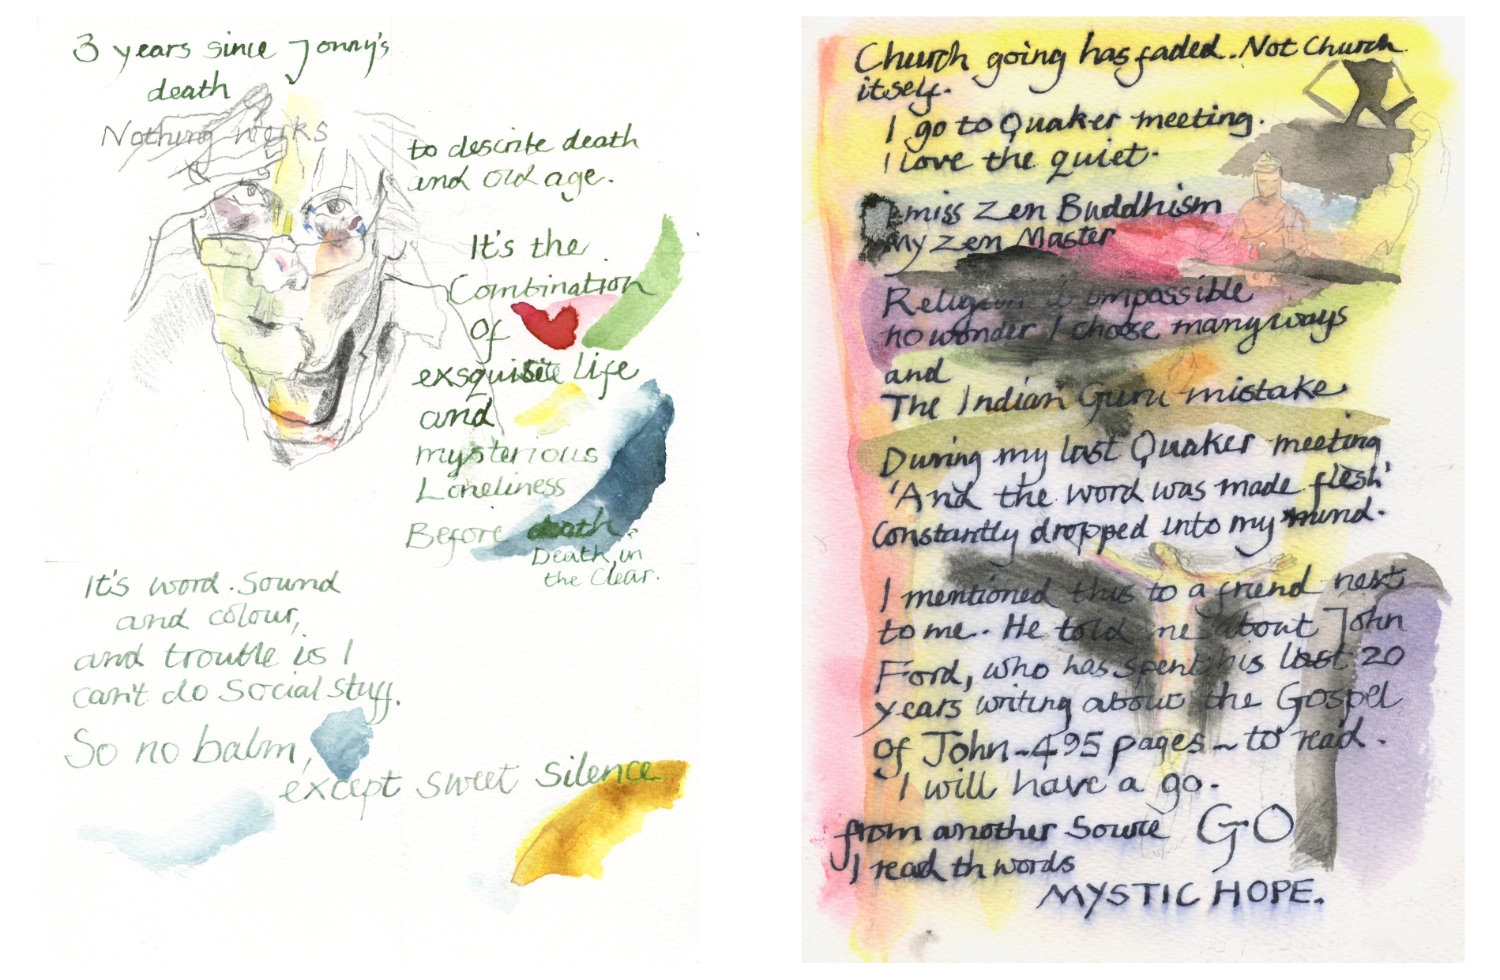 3 years since Jonny's
death
Nothing works
to describe death
and old age.
It's the
Combination
of
exsquisite life
and
mysterious
Loneliness
Before death.
Death in
the Clear.
It's word. Sound
and colour,
and trouble is I
can't do Social Stuff.
So no balm,
except sweet silence
Church going has faded. Not Church
itself.
I go to Quaker meeting.
I love the quiet.
miss Zen Buddhism
My Zen Master
Religion is impossible
no wonder I choose many ways
and
The Indian Guru mistake.
During my last Quaker meeting
'And the word was made flesh'
Constantly dropped into my mind.
I mentioned this to a friend next
to me. He told me about John
Ford, who has spent his last 20
years writing about the Gospel
of John - 495 pages ~ to read.
I will have a go.
from another Source GO
I read th words
MYSTIC HOPE.